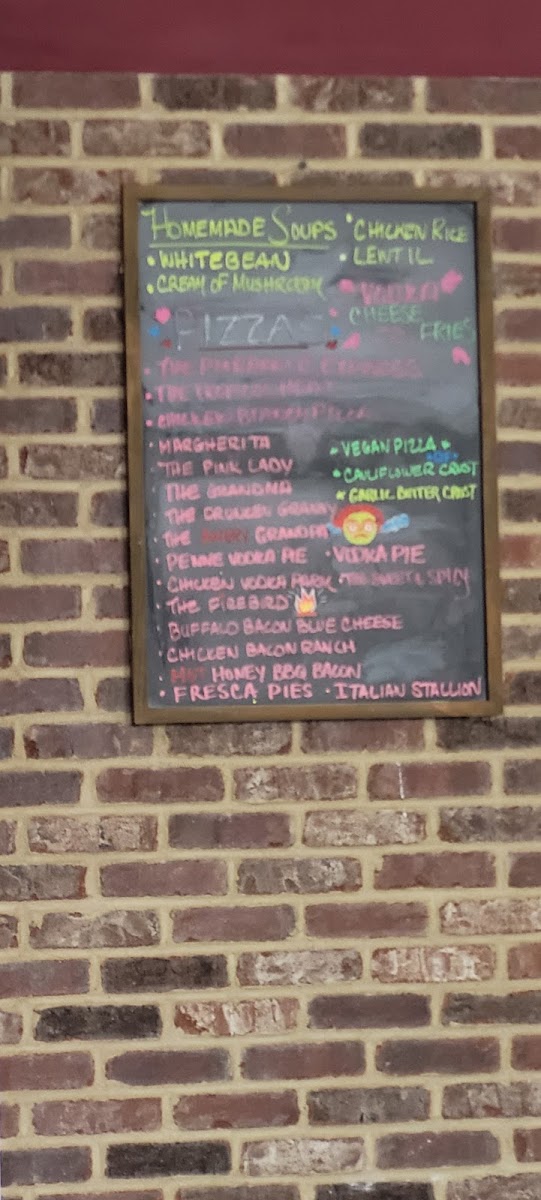 HOMEMADE SOUPS
• WHITEBEAN
• CREAM OF MUSHROOM
• CHICKEN RICE
• LENTIL
VODKA
CHEESE
FRIES
PIZZAS
• THE
• THE
• CHICKEN PIZZA
• MARGHERITA
• THE PINK LADY
• THE GRANDMA
• THE DRUNKEN GRANNY
• THE ANGRY GRANDPA
• PENNE VODKA PIE • VODKA PIE
• CHICKEN VODKA PARM • THE SWEET & SPICY
• THE FIREBIRD
• BUFFALO BACON BLUE CHEESE
• CHICKEN BACON RANCH
• HOT HONEY BBQ BACON
• FRESCA PIES • ITALIAN STALLION
• VEGAN PIZZA •
• CAULIFLOWER CRUST
• GARLIC BUTTER CRUST